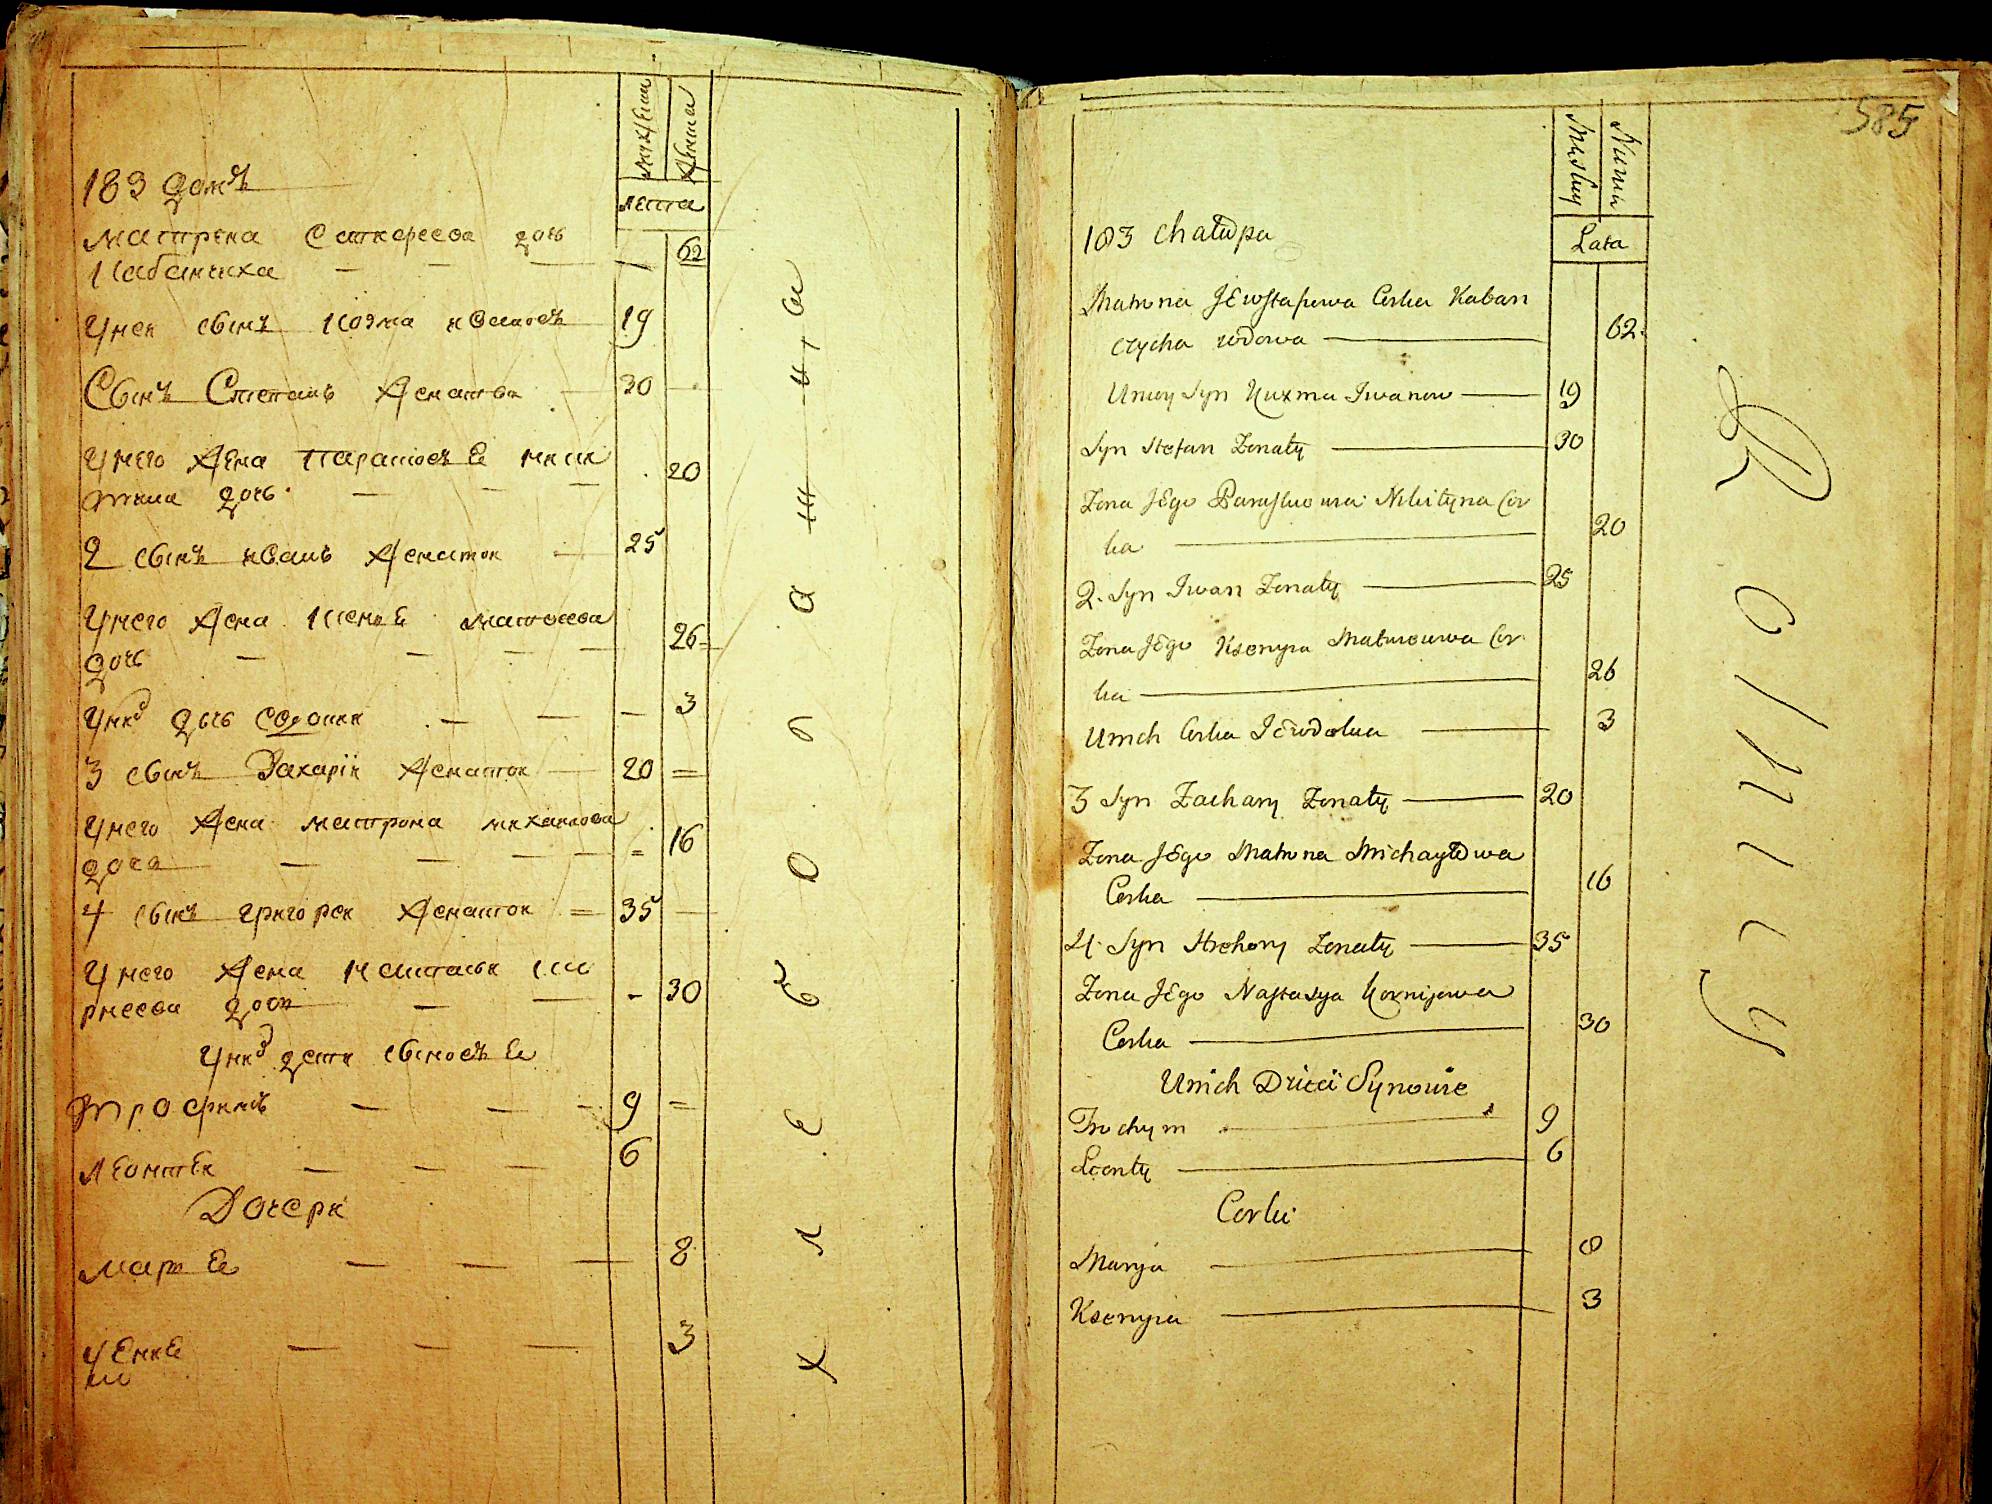 мужеска
женска
лета
183 домъ
матрена Евстафеева дочь
Кабанчиха 62
У нея сынъ Козма ивановъ 19
Сынъ Степанъ женатои 30
У него жена Парасковея ники
тина дочь 20
2 сынъ иванъ женатои 25
У него жена Ксения матвеева
дочь 26
У них дочь 3
3 сынъ Захарiи женатои 20
У него жена матрона михаилова
доча 16
4 сынъ григореи женатои 35
У него жена Настасия Ко
рнеева доч 30
У них дети сыновья
трофимъ 9
леонтеи 6
Дочери
маря 8
3
Хлебо.башца
585
Męskey
Lata
183 chałupa
Matrona Jewstafiewa Corka Kaban
czycha wdowa 62
Uniey Syn Kuzma Iwanow 19
Syn Stefan Zonaty 30
Zona Jego Paraskowia Nikityna Cor
ka 20
2. Syn Iwan Zonaty 25
Zona Jego Ksenyia Matwieiewa Cor
ka 26
Unich Corka Jewdokia 3
3 Syn Zachary Zonaty 20
Zona Jego Matrona Michayłowa
Corka 16
4. Syn Hrehory Zonaty 35
Zona Jego Nastasya Kornijewa
Corka 30
Unich Dzieci Synowie
Trochym 9
Leonty 6
Corki
Marya 8
Ksenyia 3
Rolniczy